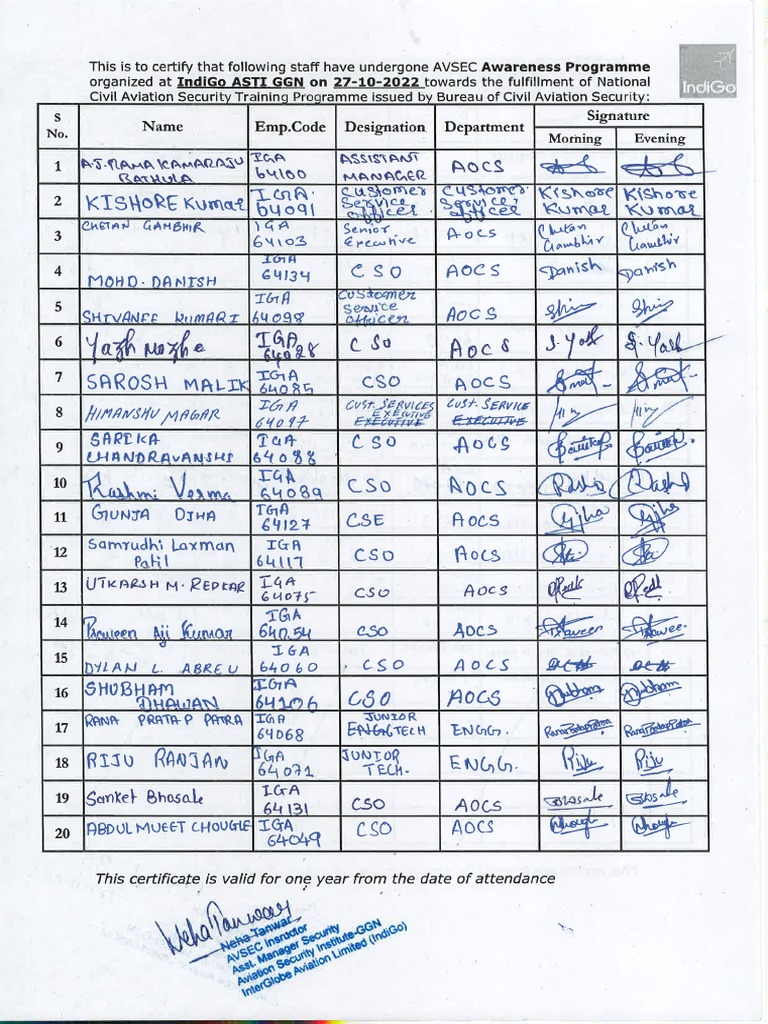 This is to certify that following staff have undergone AVSEC Awareness Programme
organized at IndiGo ASTI GGN on 27-10-2022 towards the fulfillment of National
Civil Aviation Security Training Programme issued by Bureau of Civil Aviation Security:
IndiGo
S No. Name Emp.Code Designation Department Signature
Morning Evening
1 A.J. RAMA KAMARAJU BATHULA IGA 64100 ASSISTANT MANAGER AOCS
2 KISHORE Kumar IGA. 64091 Customer Service officer Customer. Service officer KISHORE KUMAR KISHORE KUMAR
3 CHETAN GAMBHIR IGA 64103 Senior Executive AOCS Chetan Gambhir Chetan Gambhir
4 MOHD. DANISH IGA 64134 CSO AOCS Danish Danish
5 SHIVANEE KUMARI IGA 64098 Customer Service Officer AOCS
6 Yazh Mozhe IGA 64028 CSO AOCS
7 SAROSH MALIK IGA 64085 CSO AOCS
8 HIMANSHU MAGAR IGA 64097 CUST. SERVICES EXECUTIVE EXECUTIVE CUST. SERVICE EXECUTIVE
9 SARIKA CHANDRAVANSHI IGA 64088 CSO AOCS
10 Rashmi Verma IGA 64089 CSO AOCS
11 GUNJA OJHA IGA 64127 CSE AOCS
12 Samrudhi Laxman Patil IGA 64117 CSO AOCS
13 UTKARSH M. REDKAR IGA 64075 CSO AOCS
14 Praveen Aji Kumar IGA 64054 CSO AOCS
15 DYLAN L. ABREU IGA 64060 CSO AOCS
16 SHUBHAM DHAWAN IGA 64106 CSO AOCS Shubham Shubham
17 RANA PRATAP PATRA IGA 64068 JUNIOR ENGG TECH ENGG.
18 RIJU RANJAN IGA 64071 JUNIOR TECH. ENGG. Riju Riju
19 Sanket Bhosale IGA 64131 CSO AOCS Bhosale Bhosale
20 ABDUL MUEET CHOUGLE IGA 64049 CSO AOCS
This certificate is valid for one year from the date of attendance
Neha Tanwar
Neha Tanwar
AVSEC Instructor
Asst. Manager Security
Aviation Security Institute-GGN
InterGlobe Aviation Limited (IndiGo)